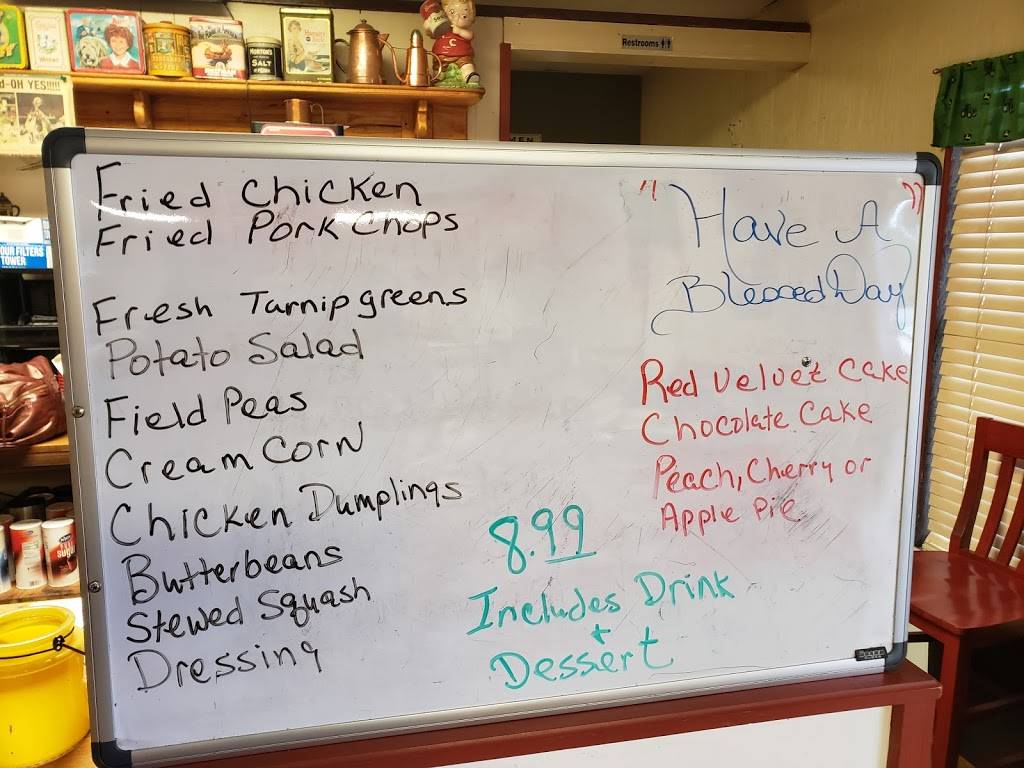 Restrooms
d-OH YES!!!!!
MORTON'S
SALT
MEN
OUR FILTERS
TOWER
Fried Chicken
Fried Pork Chops
Fresh Turnip greens
Potato Salad
Field Peas
Cream Corn
Chicken Dumplings
Butterbeans
Stewed Squash
Dressing
8.99
Includes Drink
+
Dessert
" Have A "
Blessed Day
Red Velvet Cake
Chocolate Cake
Peach, Cherry or
Apple Pie